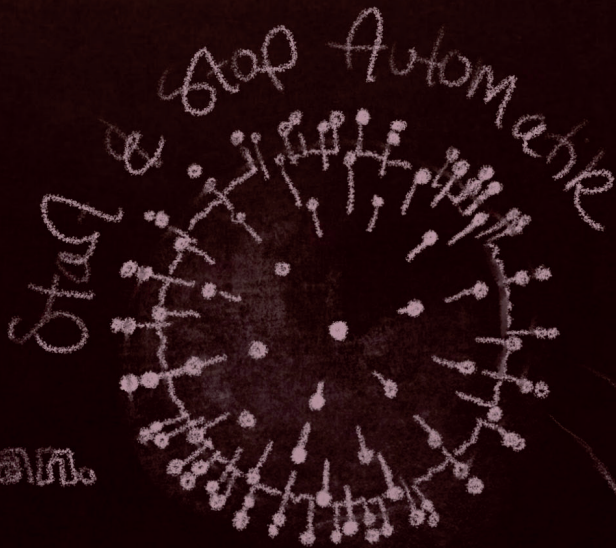 Start & Stop Automatik